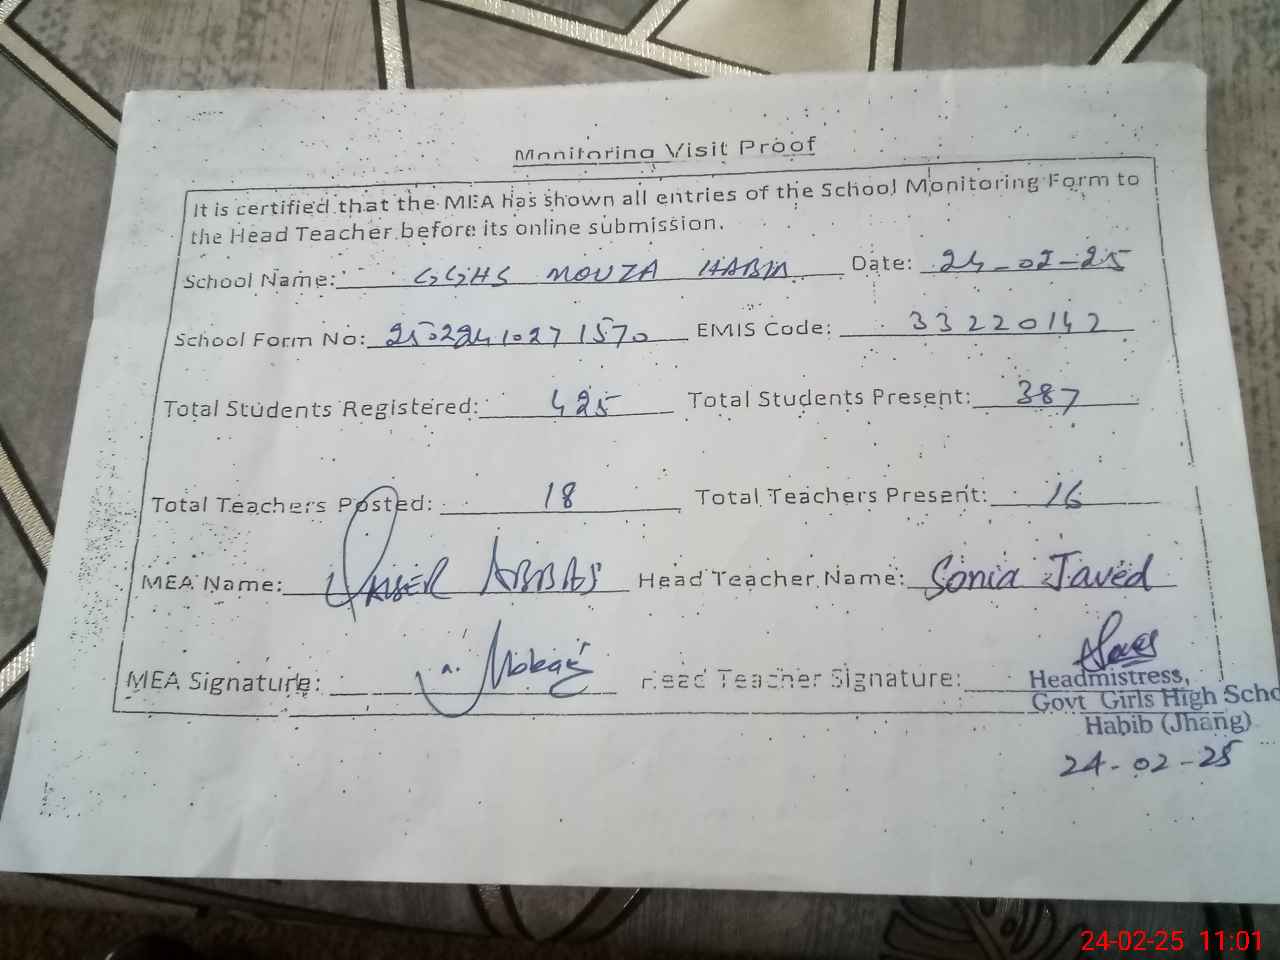 Monitoring Visit Proof
It is certified that the MEA has shown all entries of the School Monitoring Form to
the Head Teacher before its online submission.
School Name: GGHS MOUZA HABIB Date: 24-02-25
School Form No: 25022410271570 EMIS Code: 33220142
Total Students Registered: 425 Total Students Present: 387
Total Teachers Posted: 18 Total Teachers Present: 16
MEA Name: QAISER ABBAS Head Teacher Name: Sonia Javed
MEA Signature: Head Teacher Signature:
Headmistress,
Govt Girls High Scho
Habib (Jhang)
24-02-25
24-02-25 11:01